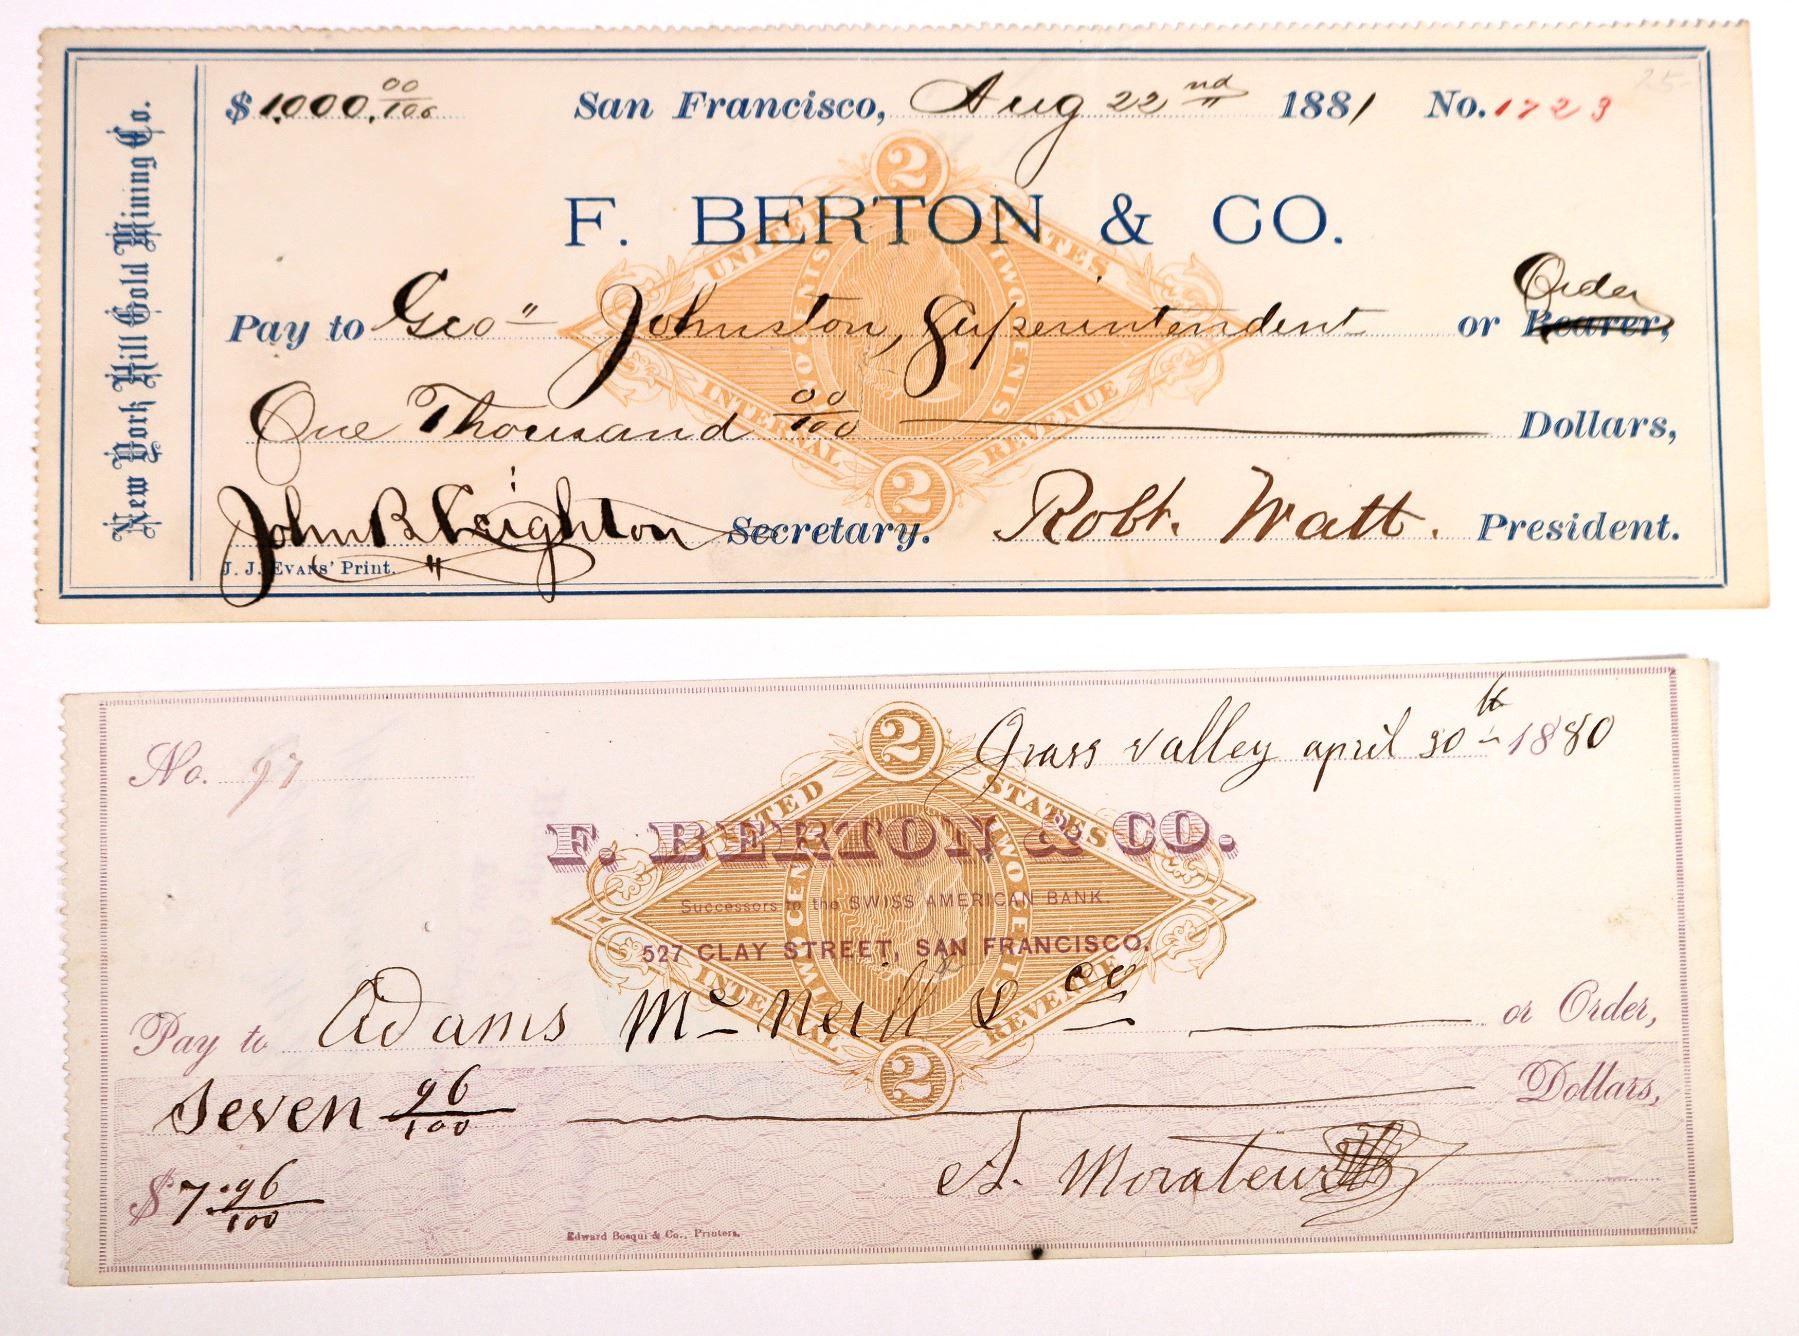 New York Hill Gold Mining Co.
$ 1,000.00/100 San Francisco, Aug 22nd 1881 No. 1723
25-
F. BERTON & CO.
Order
Pay to Geo" Johnston, Superintendent or Bearer,
One Thousand 00/100 Dollars,
John B Leighton Secretary. Robt. Watt. President.
J. J. Evans' Print.
2
UNITED STATES
TWO CENTS TWO CENTS
INTERNAL REVENUE
2
No. 97 Grass valley april 30th 1880
F. BERTON & CO.
Successors to the SWISS AMERICAN BANK.
527 CLAY STREET, SAN FRANCISCO.
Pay to Adams Mc Neill & co or Order,
Seven 96/100 Dollars,
$ 7.96/100
Edward Bosqui & Co., Printers.
2
UNITED STATES
TWO CENTS TWO CENTS
INTERNAL REVENUE
2